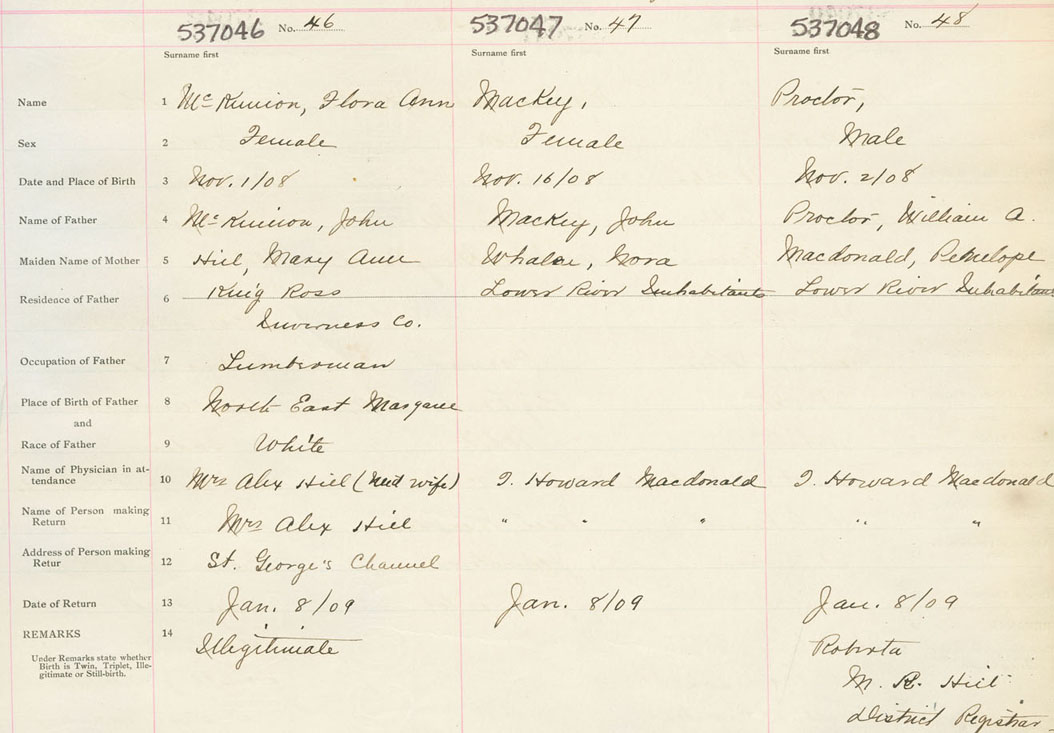 537046 No. 46 537047 No. 47 537048 No. 48
Surname first Surname first Surname first
Name 1 McKinnon, Flora Ann Mackey, Proctor,
Sex 2 Female Female Male
Date and Place of Birth 3 Nov. 1/08 Nov. 16/08 Nov. 2/08
Name of Father 4 McKinnon, John Mackey, John Proctor, William A.
Maiden Name of Mother 5 Hill, Mary Ann Whalen, Nora Macdonald, Penelope
Residence of Father 6 King Ross Lower River Inhabitants Lower River Inhabitants
Inverness Co.
Occupation of Father 7 Lumberman
Place of Birth of Father 8 North East Margaree
and
Race of Father 9 White
Name of Physician in at-
tendance 10 Mrs Alex Hill (Mid wife) J. Howard Macdonald J. Howard Macdonald
Name of Person making
Return 11 Mrs Alex Hill " " " " "
Address of Person making
Retur 12 St. George's Channel
Date of Return 13 Jan. 8/09 Jan. 8/09 Jan. 8/09
REMARKS 14 Illegitimate Roberta
Under Remarks state whether
Birth is Twin, Triplet, Ille-
gitimate or Still-birth.
M. R. Hill
District Registrar